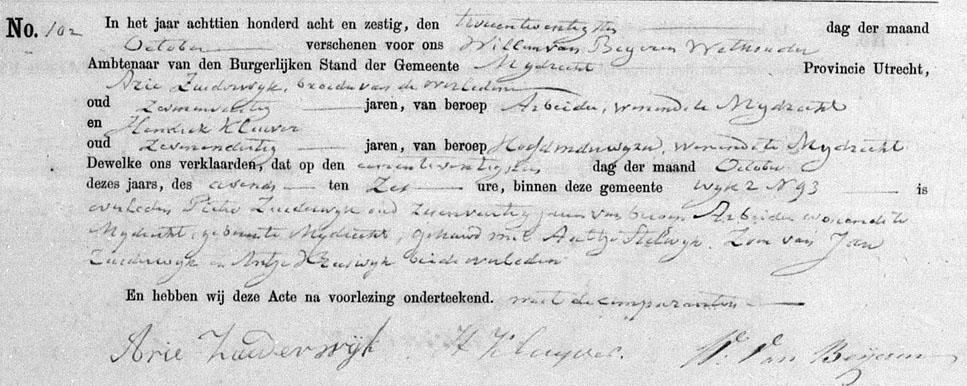 No. 102 In het jaar achttien honderd acht en zestig, den tweeentwintigsten dag der maand
October verschenen voor ons Willem van Beijeren Wethouder
Ambtenaar van den Burgerlijken Stand der Gemeente Mydrecht Provincie Utrecht,
Arie Zuiderwyk, broeder van de overledene
oud jaren, van beroep Arbeider, wonende te Mydrecht
en Hendrik Kluever
oud zevenendertig jaren, van beroep Hoofdonderwyzer, wonende te Mydrecht
Dewelke ons verklaarden, dat op den eenentwintigsten dag der maand October
dezes jaars, des avonds ten Zes ure, binnen deze gemeente wyk 2 N 93 is
overleden Pieter Zuiderwyk oud jaren van beroep Arbeider wonende te
Mydrecht, geboren te Mydrecht, gehuwd met Aaltje Stelwyk. Zoon van Jan
Zuiderwyk en Antje beide overleden
En hebben wij deze Acte na voorlezing onderteekend. met de comparanten
Arie Zuiderwijk H Kluyver. W. Van Beijeren